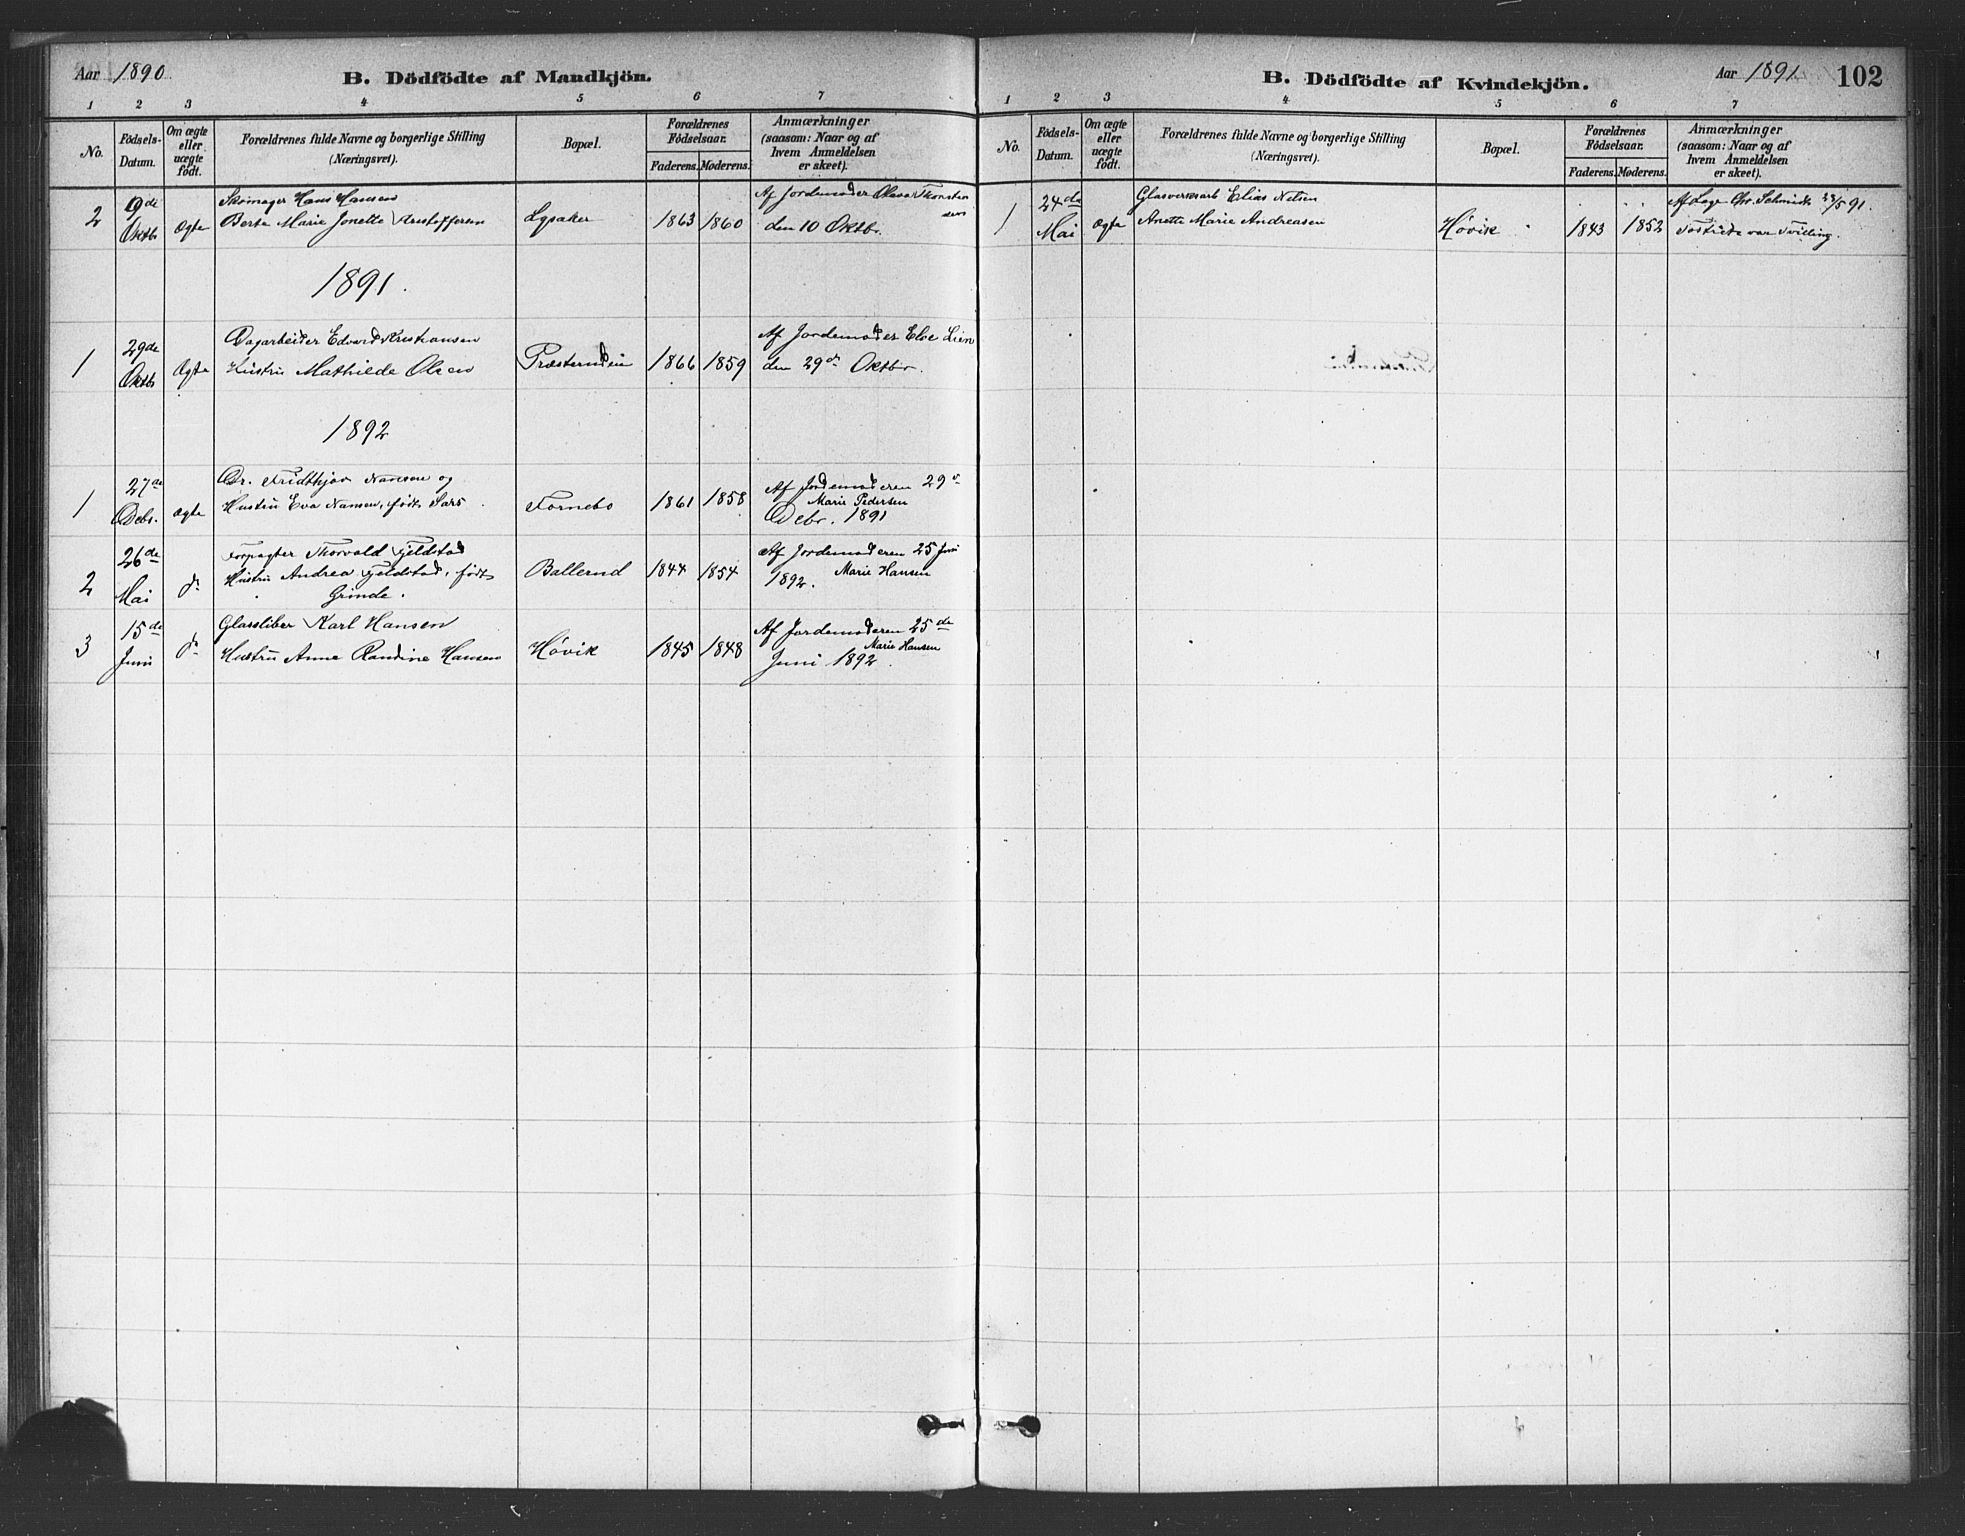 Aar 1890.
B. Dödfödte af Mandkjön.
1 2 3 4 5 6 7
No.
Födsels-Datum.
Om ægte eller uægte födt.
Forældrenes fulde Navne og borgerlige Stilling (Næringsvei).
Bopæl.
Forældrenes Födselsaar.
Faderens. Moderens.
Anmærkninger
(saasom: Naar og af
hvem Anmeldelsen
er skeet).
2
9de Oktb
Ægte
Skomager Hans Hansen
Berte Marie Jonette Kristoffersen
Lysaker
1863 1860
Af Jordemoder Olava
den 10 Oktbr.
1891.
1
29de Oktb
Ægte
Dagarbeider Edvard Kristiansen
Hustru Mathilde Olsen
1866 1859
Af Jordemoder Else Lien
den 29de Oktbr.
1892
1
27de Debr.
ægte
Dr. Fridthjov Nansen og
Hustru Eva Nansen, født Sars
Fornebo
1861 1858
Af Jordemoderen 29de
Marie Pedersen
Debr. 1891
2
26de Mai
do
Forpagter Thorvald Fjeldstad
Hustru Andrea Fjeldstad, født
Grinde.
Ballerud
1844 1854
Af Jordemoderen 25 Juni
1892. Marie Hansen
3
15de Juni
do
Glassliber Karl Hansen
Hustru Anne Randine Hansen
Høvik
1845 1848
Af Jordemoderen 25de
Marie Hansen
Juni 1892.
B. Dödfödte af Kvindekjön.
Aar 1891 102
1 2 3 4 5 6 7
No.
Födsels-Datum.
Om ægte eller uægte födt.
Forældrenes fulde Navne og borgerlige Stilling (Næringsvei).
Bopæl.
Forældrenes Födselsaar.
Faderens. Moderens.
Anmærkninger
(saasom: Naar og af
hvem Anmeldelsen
er skeet).
1
24de Mai
Ægte
Glasverksarb Elias Nelsen
Anette Marie Andreasen
Høvik
1843 1852
Af Læge Chr. Schmidt /5 91.
var Tvilling.